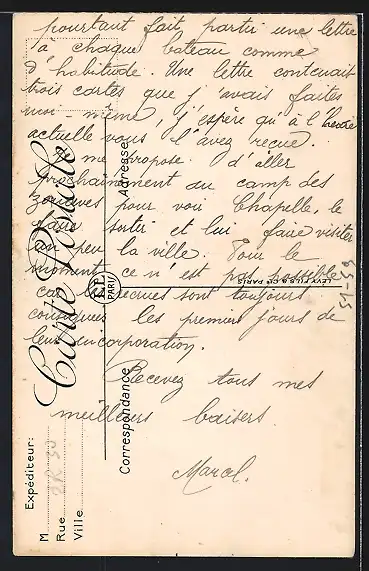 pourtant fait partir une lettre
à chaque bateau comme
d'habitude. Une lettre contenait
trois cartes que j'avais faites
moi même, j'espère qu'à l'heure
actuelle vous l'avez reçue.
Je me propose d'aller
prochainement au camp des
zouaves pour voir Chapelle, le
faire sortir et lui faire visiter
un peu la ville. Pour le
moment ce n'est pas possible
car les recrues sont toujours
consignées les premiers jours de
leur incorporation.
Recevez tous mes
meilleurs baisers.
Marcel.
Carte Postale
Adresse
Correspondance
LL
PARIS
LEVY FILS & Cie PARIS
51-59
Expéditeur:
M
Rue
Ville